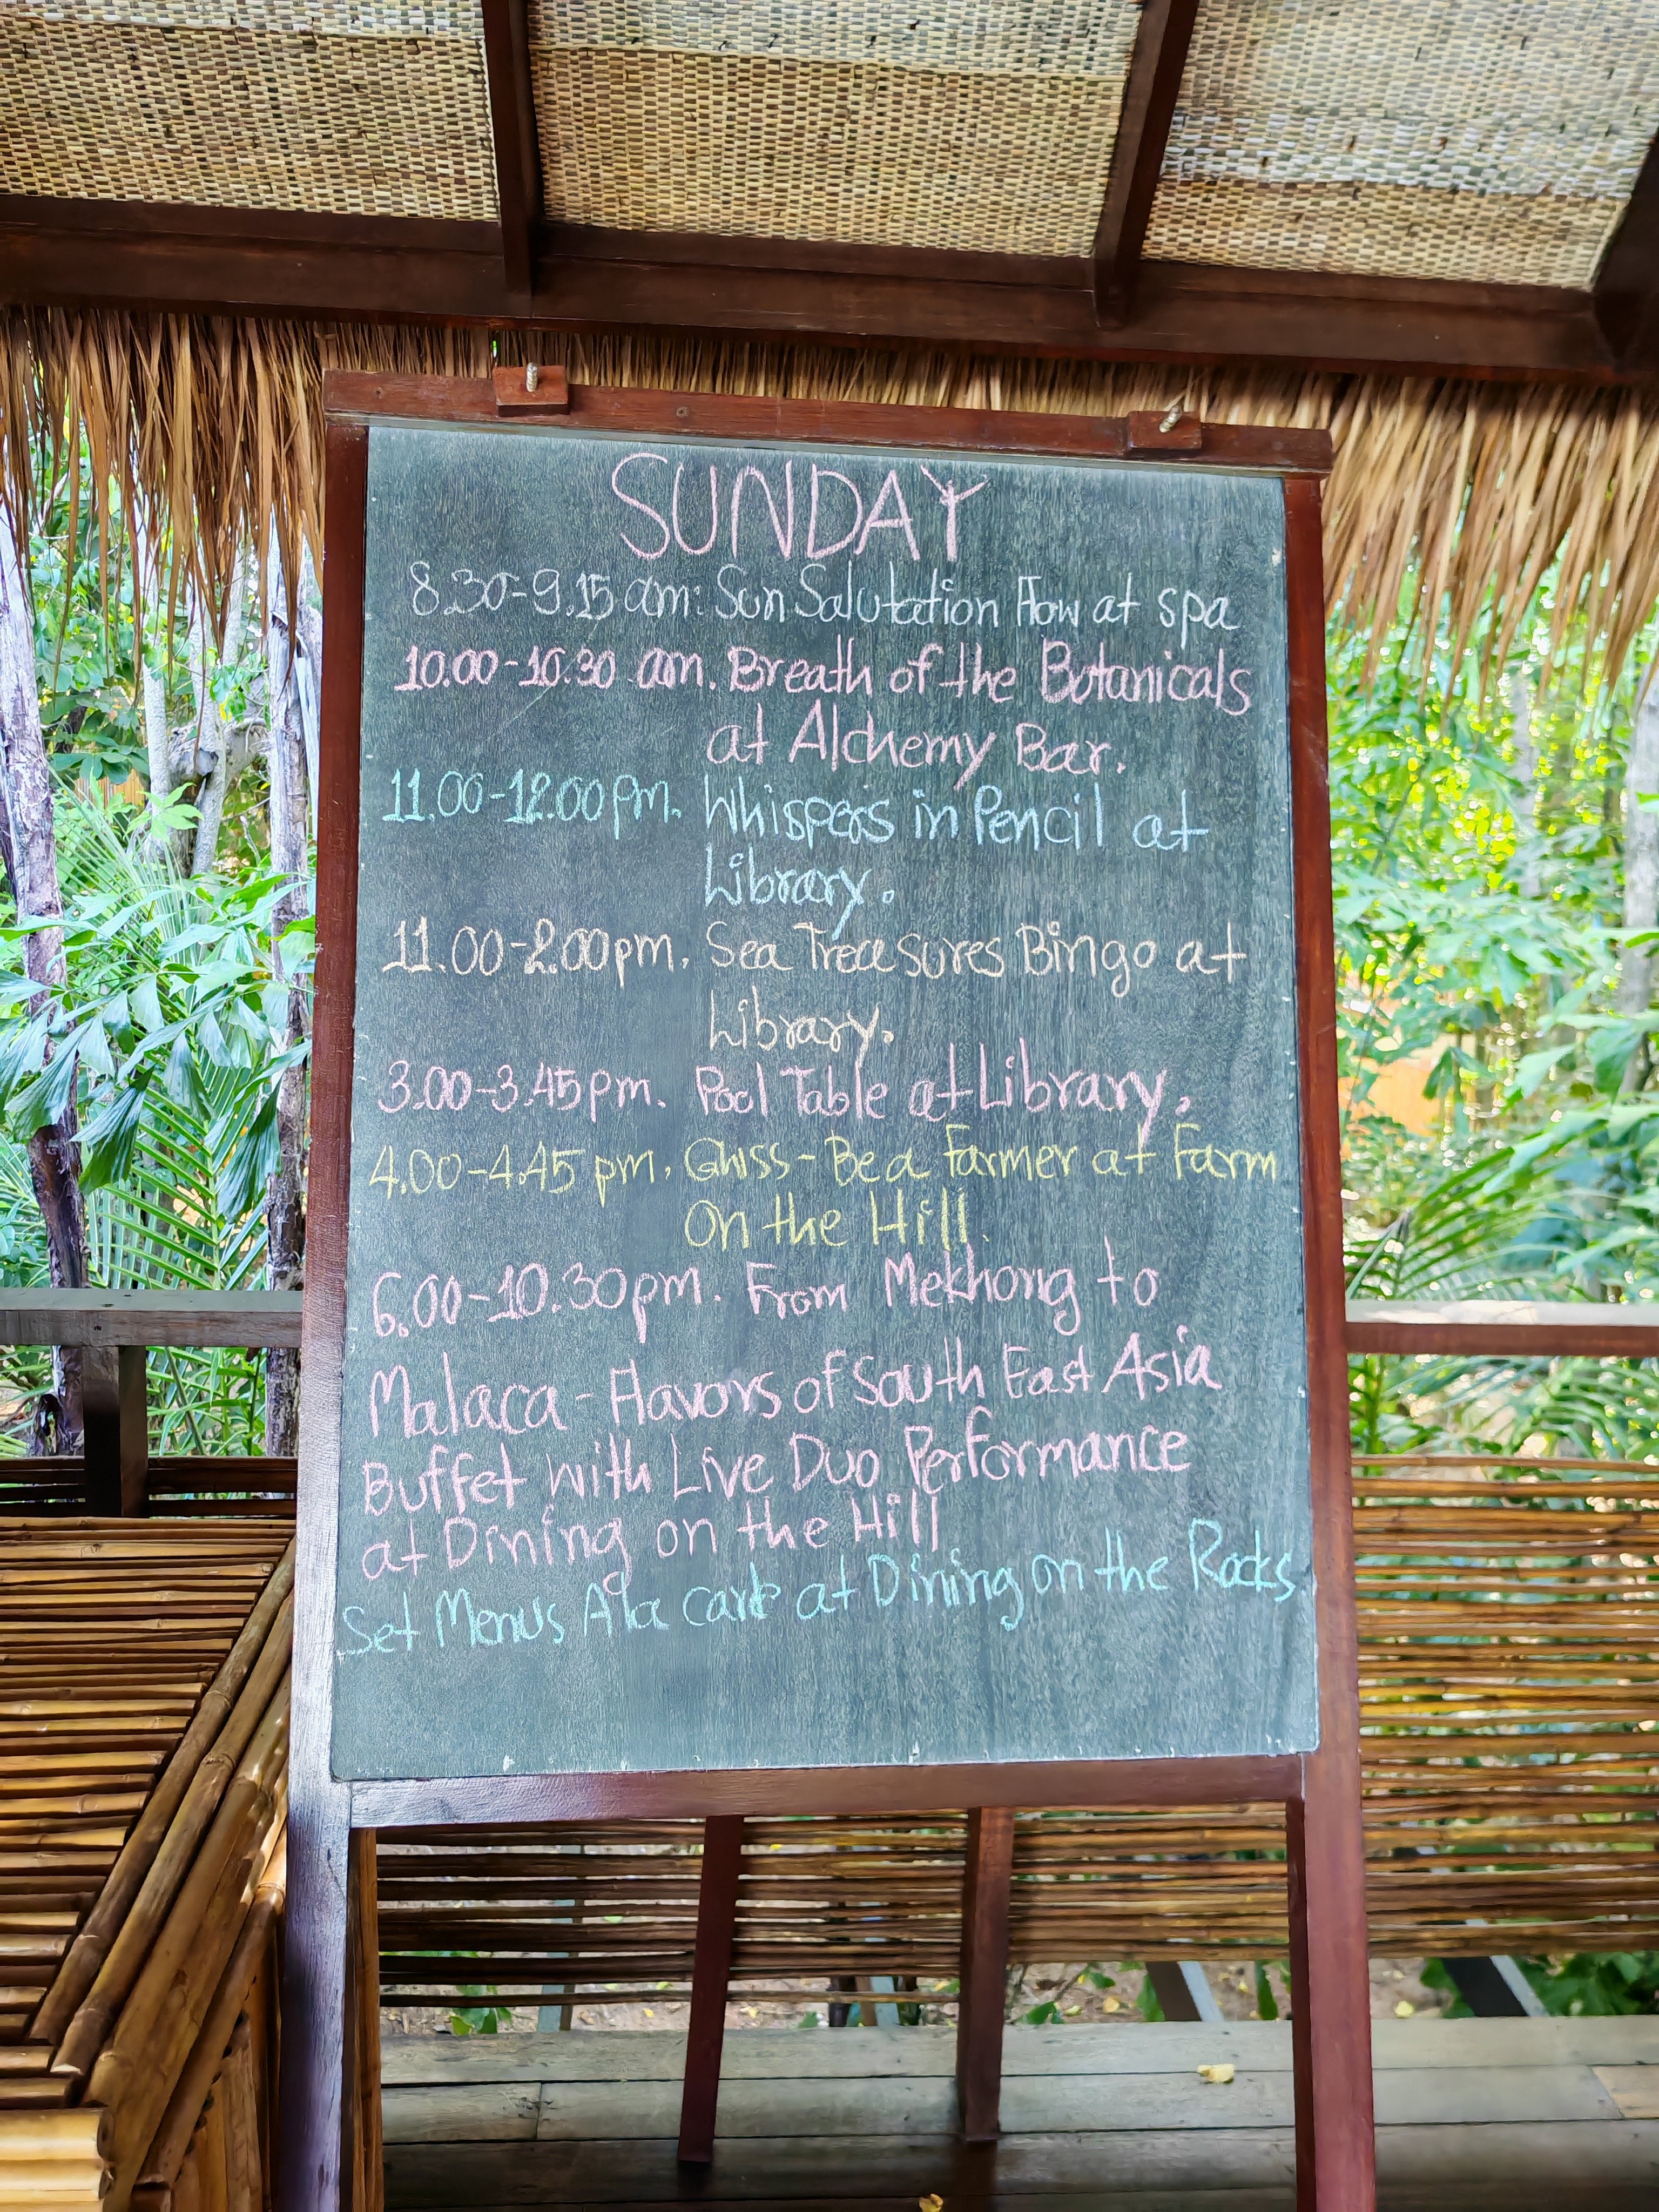 SUNDAY
8.30-9.15 am: Sun Salutation Flow at spa
10.00-10.30 am. Breath of the Botanicals
at Alchemy Bar.
11.00-12.00 pm. Whispers in Pencil at
Library.
11.00-2.00pm. Sea Treasures Bingo at
Library.
3.00-3.45pm. Pool Table at Library.
4.00-4.45 pm. - Be a Farmer at Farm
On the Hill.
6.00-10.30pm. From Mekhong to
Malaca - Flavors of South East Asia
Buffet with Live Duo Performance
at Dining on the Hill
Set Menus A la carte at Dining on the Rocks